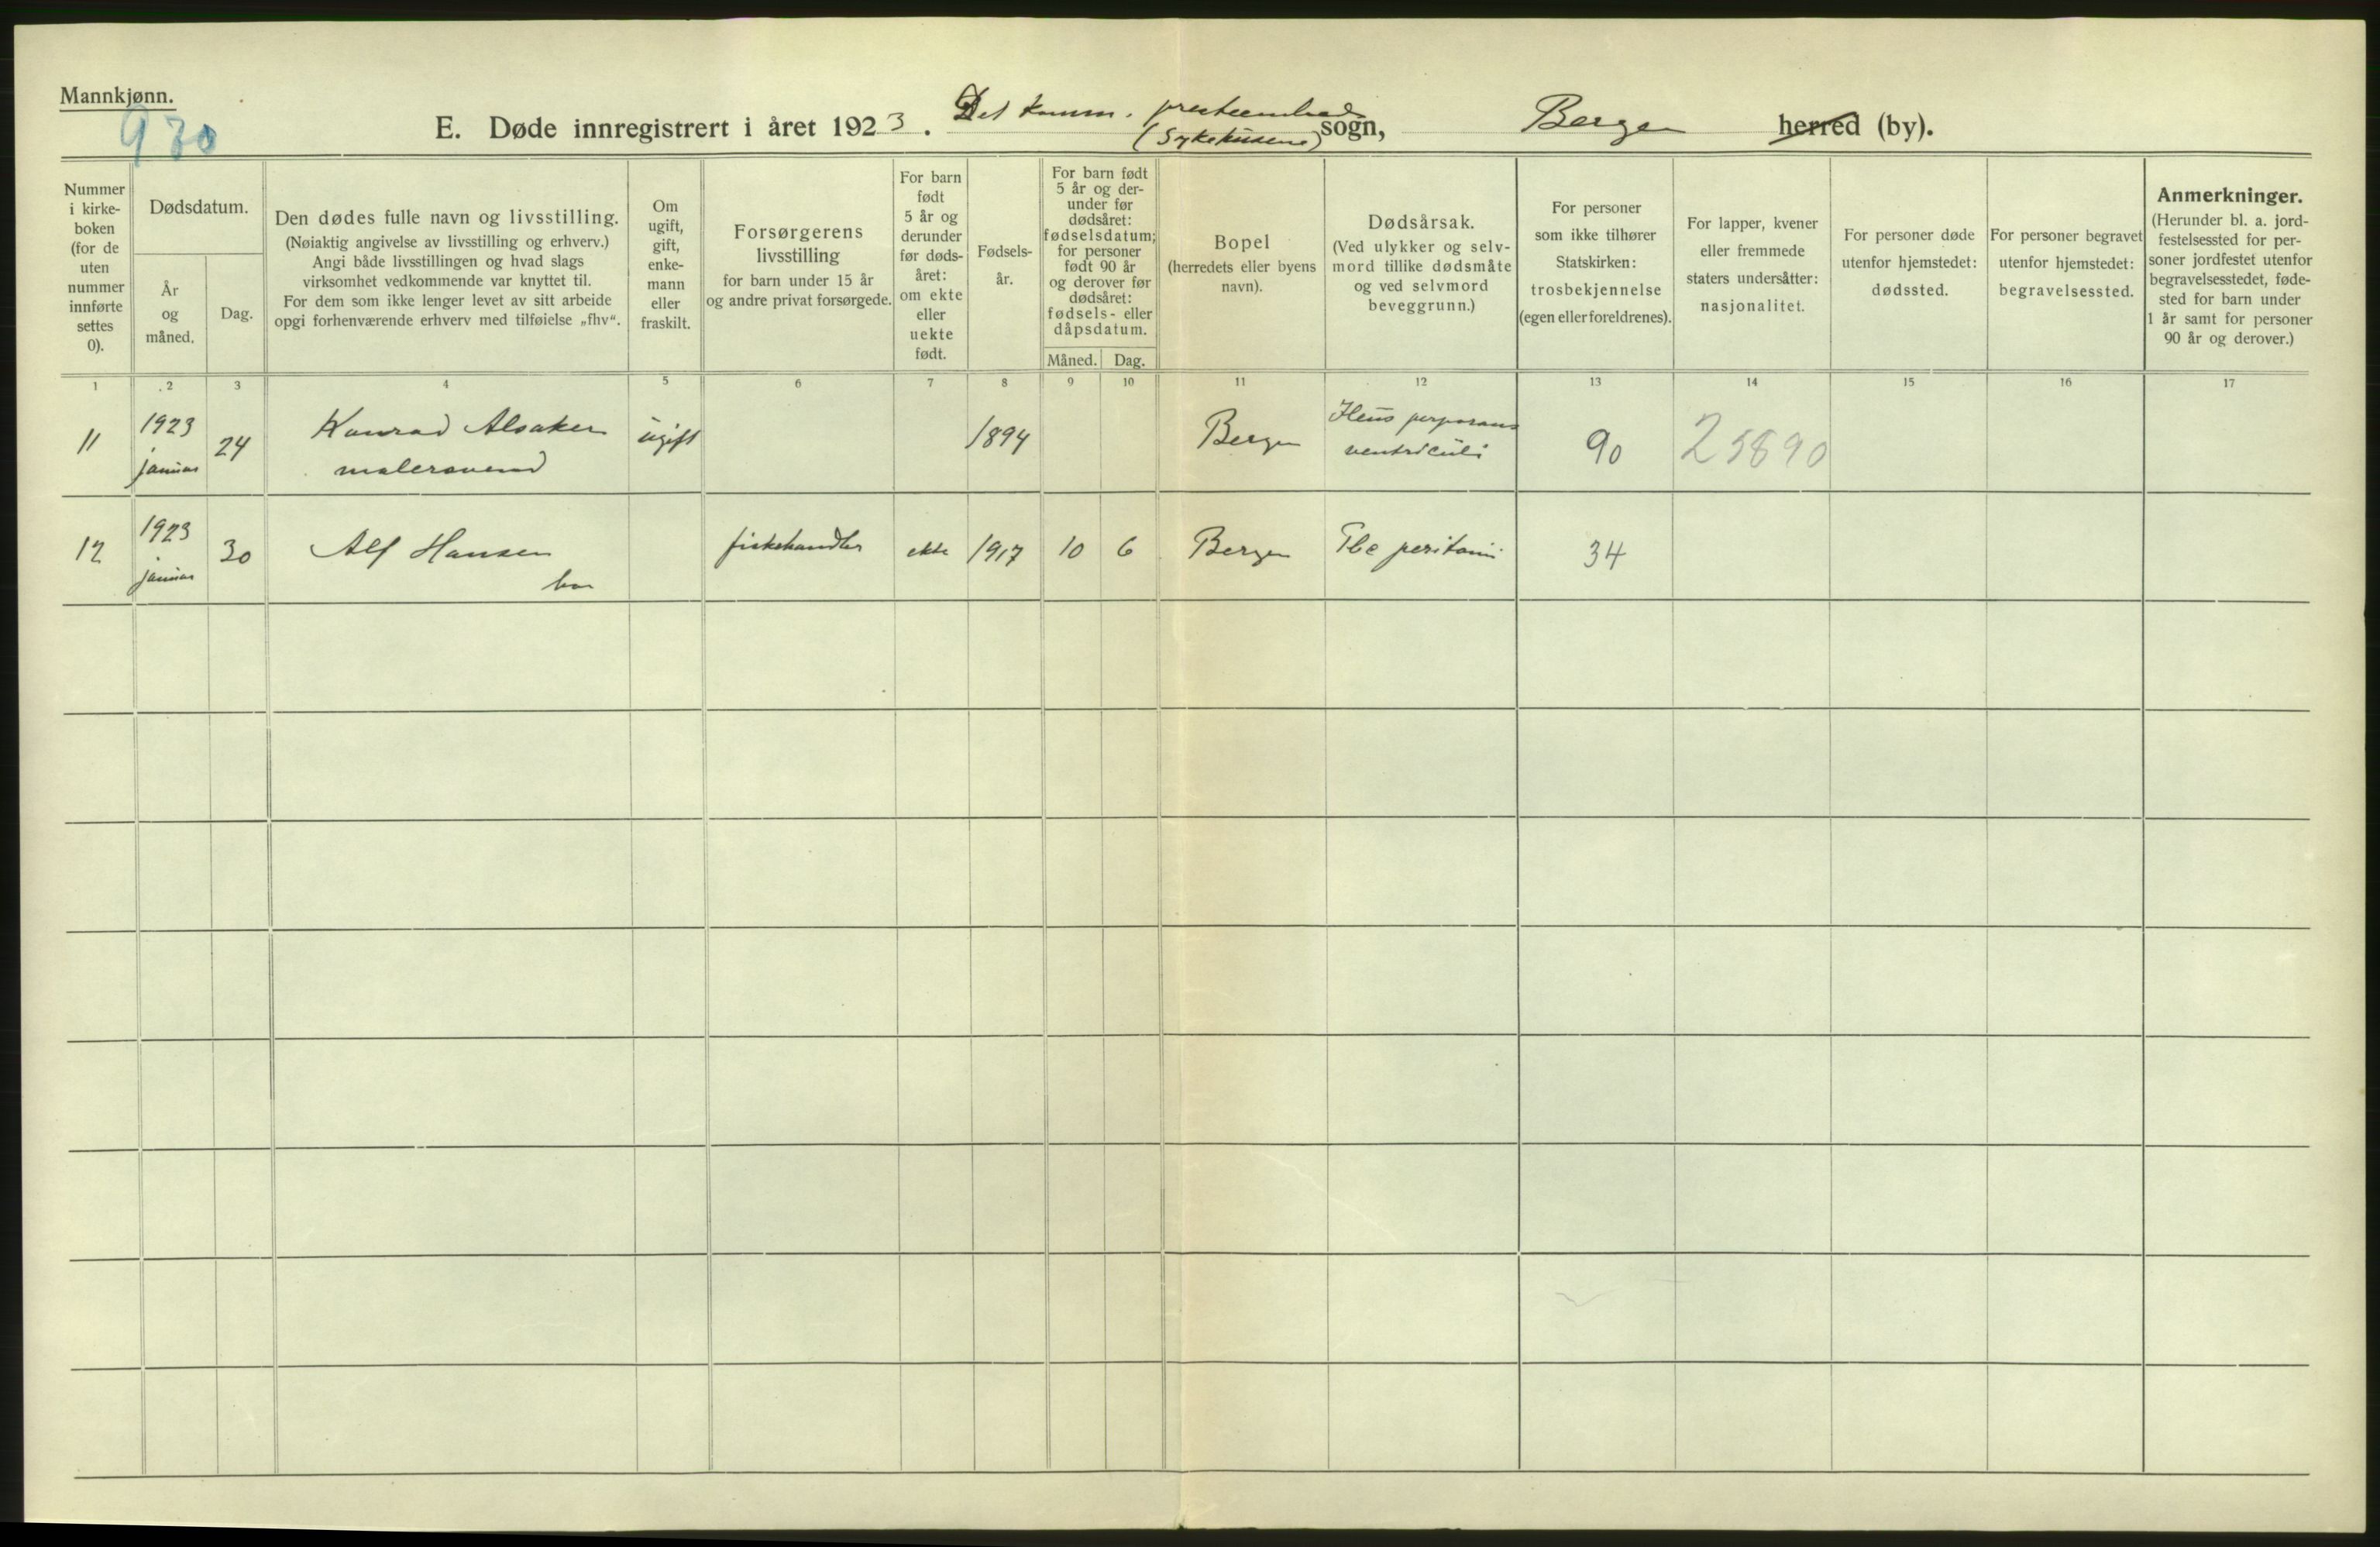 Mannkjønn.
930
E. Døde innregistrert i året 1923. Det komm. presteembed
(Sykehusene) sogn, Bergen herred (by).
Nummer
i kirke-
boken
(for de
uten
nummer
innførte
settes
0).
Dødsdatum.
År
og
måned.
Dag.
Den dødes fulle navn og livsstilling.
(Nøiaktig angivelse av livsstilling og erhverv.)
Angi både livsstillingen og hvad slags
virksomhet vedkommende var knyttet til.
For dem som ikke lenger levet av sitt arbeide
opgi forhenværende erhverv med tilføielse „fhv“.
Om
ugift,
gift,
enke-
mann
eller
fraskilt.
Forsørgerens
livsstilling
for barn under 15 år
og andre privat forsørgede.
For barn
født
5 år og
derunder
før døds-
året:
om ekte
eller
uekte
født.
Fødsels-
år.
For barn født
5 år og der-
under før
dødsåret:
fødselsdatum;
for personer
født 90 år
og derover før
dødsåret:
fødsels- eller
dåpsdatum.
Måned. Dag.
Bopel
(herredets eller byens
navn).
Dødsårsak.
(Ved ulykker og selv-
mord tillike dødsmåte
og ved selvmord
beveggrunn.)
For personer
som ikke tilhører
Statskirken:
trosbekjennelse
(egen eller foreldrenes).
For lapper, kvener
eller fremmede
staters undersåtter:
nasjonalitet.
For personer døde
utenfor hjemstedet:
dødssted.
For personer begravet
utenfor hjemstedet:
begravelsessted.
Anmerkninger.
(Herunder bl. a. jord-
festelsessted for per-
soner jordfestet utenfor
begravelsesstedet, føde-
sted for barn under
1 år samt for personer
90 år og derover.)
1 2 3 4 5 6 7 8 9 10 11 12 13 14 15 16 17
11 1923 januar 24 Konrad Alsaker ugift 1894 Bergen
malersvend
ventriculi 90 25890
12 1923 januar 30 Alf Hansen fiskehandler ekte 1917 10 6 Bergen Tbc peritonii 34